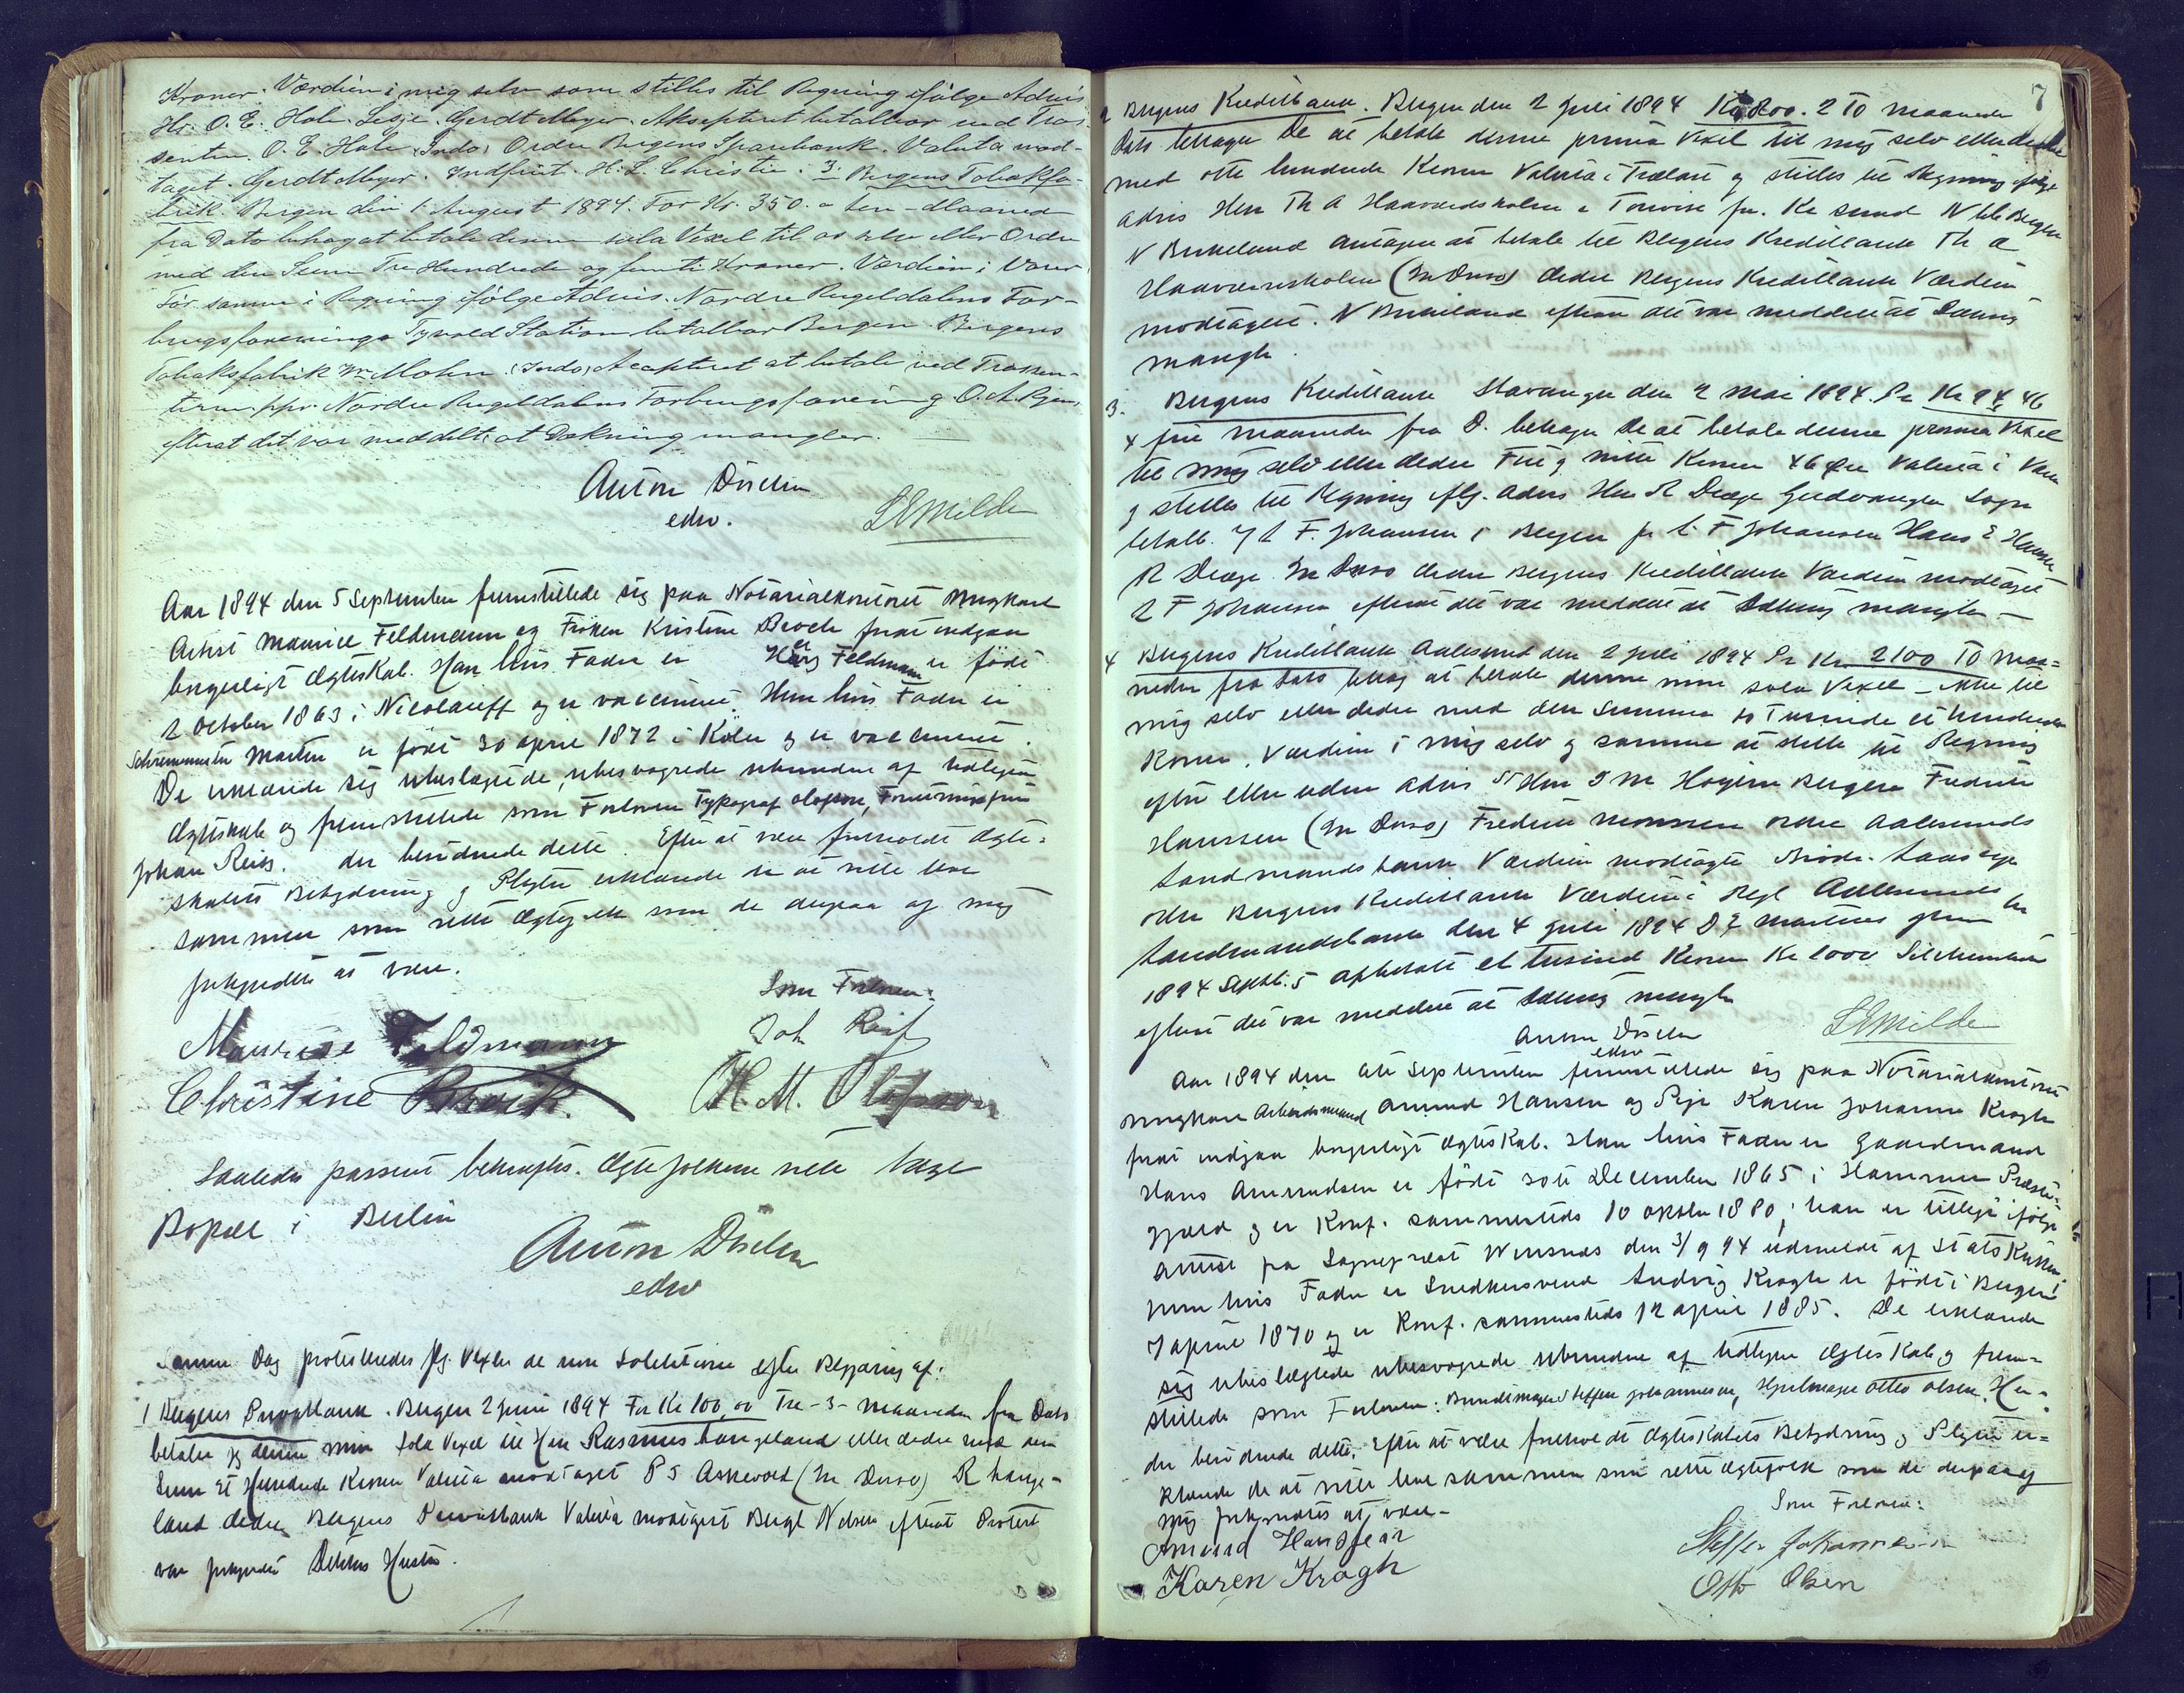 Kroner. Værdien i mig selv som stilles til Regning ifølge Advis
Hr. O. E. Hole. Lesje. Gerdt Meyer. Aksepteret betalbar ved Tras-
senten. O. E. Hole (Indo) Ordre Bergens Sparebank. Valuta mod-
taget. Gerdt Meyer. Indfriet. H. L. Christie. 3. Bergens Tobakfa-
brik. Bergen den 1 August 1894. For Kr. 350.- Een - Maaned
fra Dato behag at betale denne sola Vexel til os selv eller Ordre
med den Sum Tre Hundrede og femti Kroner. Værdien i Varer
For samme i Regning ifølge Advis. Nordre Ringeldalens For-
brugsforenings Tynold Station betalbar Bergen. Bergens
Tobaksfabrik Wm Mohn. (Indo) Accepteret at betale ved Trassen-
ten ppr. Nordre Ringeldalens Forbrugsforening O. A.
efterat det var meddelt, at Dækning mangler.
Anton
edsv.
L Emilde
Aar 1894 den 5 September fremstillede sig paa Notarialkontoret Ungkarl
Artist Maurice Feldmann og Frøken Kristine Broch for at indgaa
borgerligt Ægteskab. Han hvis Fader er Herz Feldmann er født
2 October 1863 i Nicolaieff og er vaccineret. Hun hvis Fader er
Schreinmester Martin er født 30 april 1872 i Köln og er vaccineret.
De erklærede sig ubeslægtede, ubesvogrede ubundne af tidligere
Ægteskab og fremstillede som Forlovere Typograf Olafson,
Johan Reiss. der bevidnede dette. Efter at være foreholdt Ægte-
skabets Betydning og Pligter erklærede de at ville leve
sammen som rette Ægtefolk som de derpaa af mig
forkyndtes at være.
Som Forlovere:
Maurice Feldmann
Joh Reiß
Christine Broik.
H. M. Olafson
Saaledes passeret bekræftes. Ægtefolkene ville tage
Bopæl i Berlin
Anton
edsv
Samme Dag protesteredes flg. Vexler de uden Solennitetene efter Begjæring af:
1 Bergens Privatbank. Bergen 2 Juni 1894 For Kr 100,00 Tre - 3 - maaneder fra Dato
betaler jeg denne min sola Vexel til Herr Rasmus Langeland eller Ordre med den
Sum Et Hundrede Kroner Valuta modtaget P S Askevold (In Dorso) R Lange-
land Ordre Bergens Privatbank Valuta modtaget Bergt Nelsen efterat Protest
var forkyndt Hustru.
7
2 Bergens Kreditbank. Bergen den 2 Juli 1894 Kr 800. 2 To maaneder
Dato behager De at betale denne prima Vexel til mig selv eller Ordre
med otte hundrede Kroner Valuta i Trælast og stilles til Regning ifølge
advis Herr Th A Haavardsholm N
N Birkeland antages at betale til Bergens Kreditbank Th A
Haavardsholm (In Dorso) Ordre Bergens Kreditbank Værdien
modtaget. N Birkeland efterat det var meddelt at Dækning
mangler.
3. Bergens Kreditbank Stavanger den 2 Mai 1894. Pr Kr 94,46
4 fire maaneder fra D. behager De at betale denne prima Vexel
til mig selv eller Ordre Fire og nitti Kroner 46 Øre Valuta i Varer
og stilles til Regning flg. advis Herr R Dræge Gudvangen Sogn
betalb. L F. Johansen i Bergen L F Johansen Hans E Hansen
R Dræge. In Dorso Ordre Bergens Kreditbank Værdien modtaget
L F Johansen efterat det var meddelt at Dækning mangler —
4 Bergens Kreditbank Aalesund den 2 Juli 1894 Pr Kr 2100 To maa-
neder fra Dato behag at betale denne min sola Vexel - ikke til
mig selv eller Ordre med den Summa to Tusinde et hundrede
Kroner. Værdien i mig selv og samme at stille til Regning
efter eller uden advis Herr I M Hogsen Bergen Fredrik
Hanssen (In Dorso) Fredrik Ordre Aalesunds
Landmandsbank Værdien modtaget
Ordre Bergens Kreditbank Værdien i Regl Aalesunds
Landmandsbank den 4 Juli 1894 D E Martens
1894 Septbr. 5 afbetalt et tusind Kroner Kr 1000
efterat det var meddelt at Dækning mangler
Anton
edsv
L Emilde
Aar 1894 den 6te September fremstillede sig paa Notarialkontoret
Ungkarl Arbeidsmand Amund Hansen og Pige Karen Johanne Krogh
for at indgaa borgerligt Ægteskab. Han hvis Fader er Gaardmand
Hans Amundsen er født 30te December 1865 i Hammer Præste-
gjeld og er Konf. sammesteds 10 oktbr 1880, han er tillige ifølge
attest fra Sogneprest den 3/9 94 udmeldt af Statskirken
hun hvis Fader er Snedkersvend Ludvig Krogh er født i Bergen
7 april 1870 og er Konf. sammesteds 12 april 1885. De erklærede
sig ubeslægtede ubesvogrede ubundne af tidligere Ægteskab og frem-
stillede som Forlovere: Bundtmager Steffen Johannesen, Hjulmager Otto Olsen.
der bevidnede dette. Efter at være foreholdt Ægteskabets Betydning og Pligter er-
klærede de at ville leve sammen som rette Ægtefolk som de derpaa af
mig forkyndtes at være -
Som Forlovere:
Amund
Steffen Johannesen
Karen Krogh
Otto Olsen